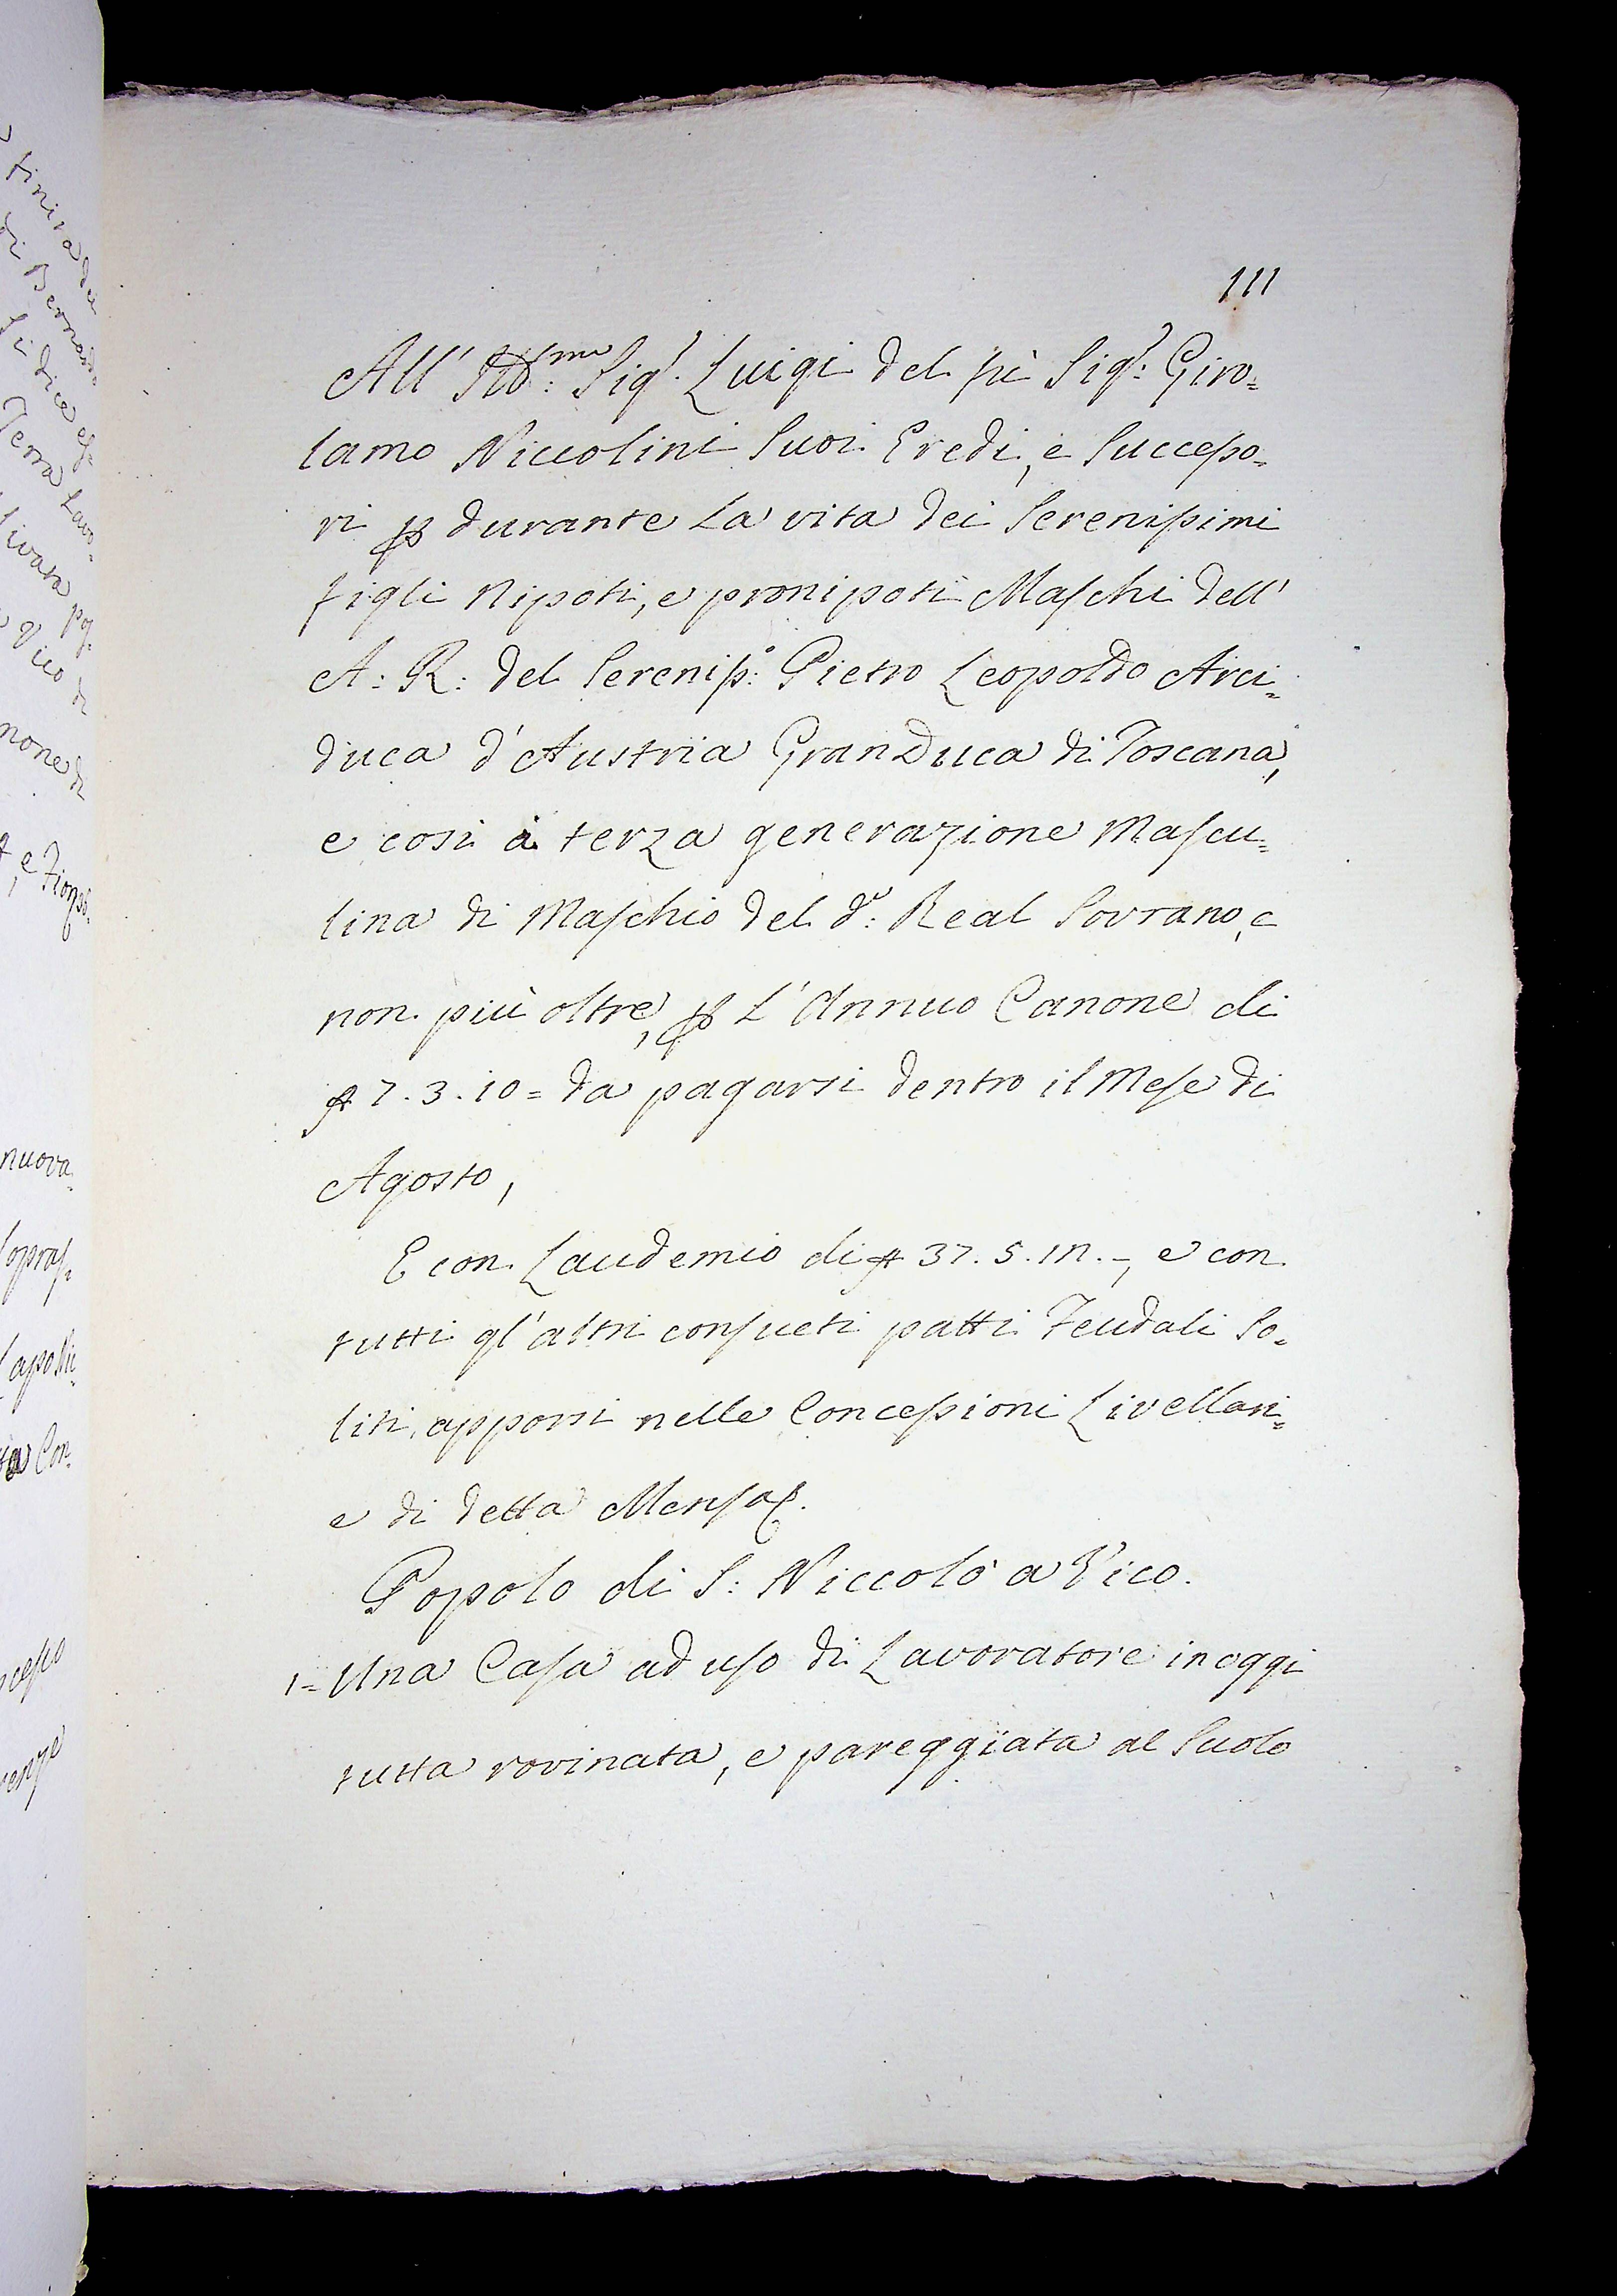 111
All' Ill:mo Sigr. Luigi del fù Sigr: Giro=
lamo Niccolini Suoi Eredi, e Successo=
ri p durante La vita dei Serenissimi
figli Nipoti, e pronipoti Maschi dell'
A: R: del Sereniss:o Pietro Leopoldo Arci=
duca d'Austria GranDuca di Toscana,
e così à terza generazione Mascu=
lina di Maschio del d:o Real Sovrano, e
non più oltre, p L'Annuo Canone di
7.3.10= da pagarsi dentro il Mese di
Agosto,
E con Laudemio di 37.5.12.-, e con
tutti gl'altri consueti patti Feudali So=
liti apporsi nelle Concessioni Livellari=
e di detta Mensa
Popolo di S: Niccolò a Vico.
1= Una Casa ad uso di Lavoratore in oggi
tutta rovinata, e pareggiata al Suolo